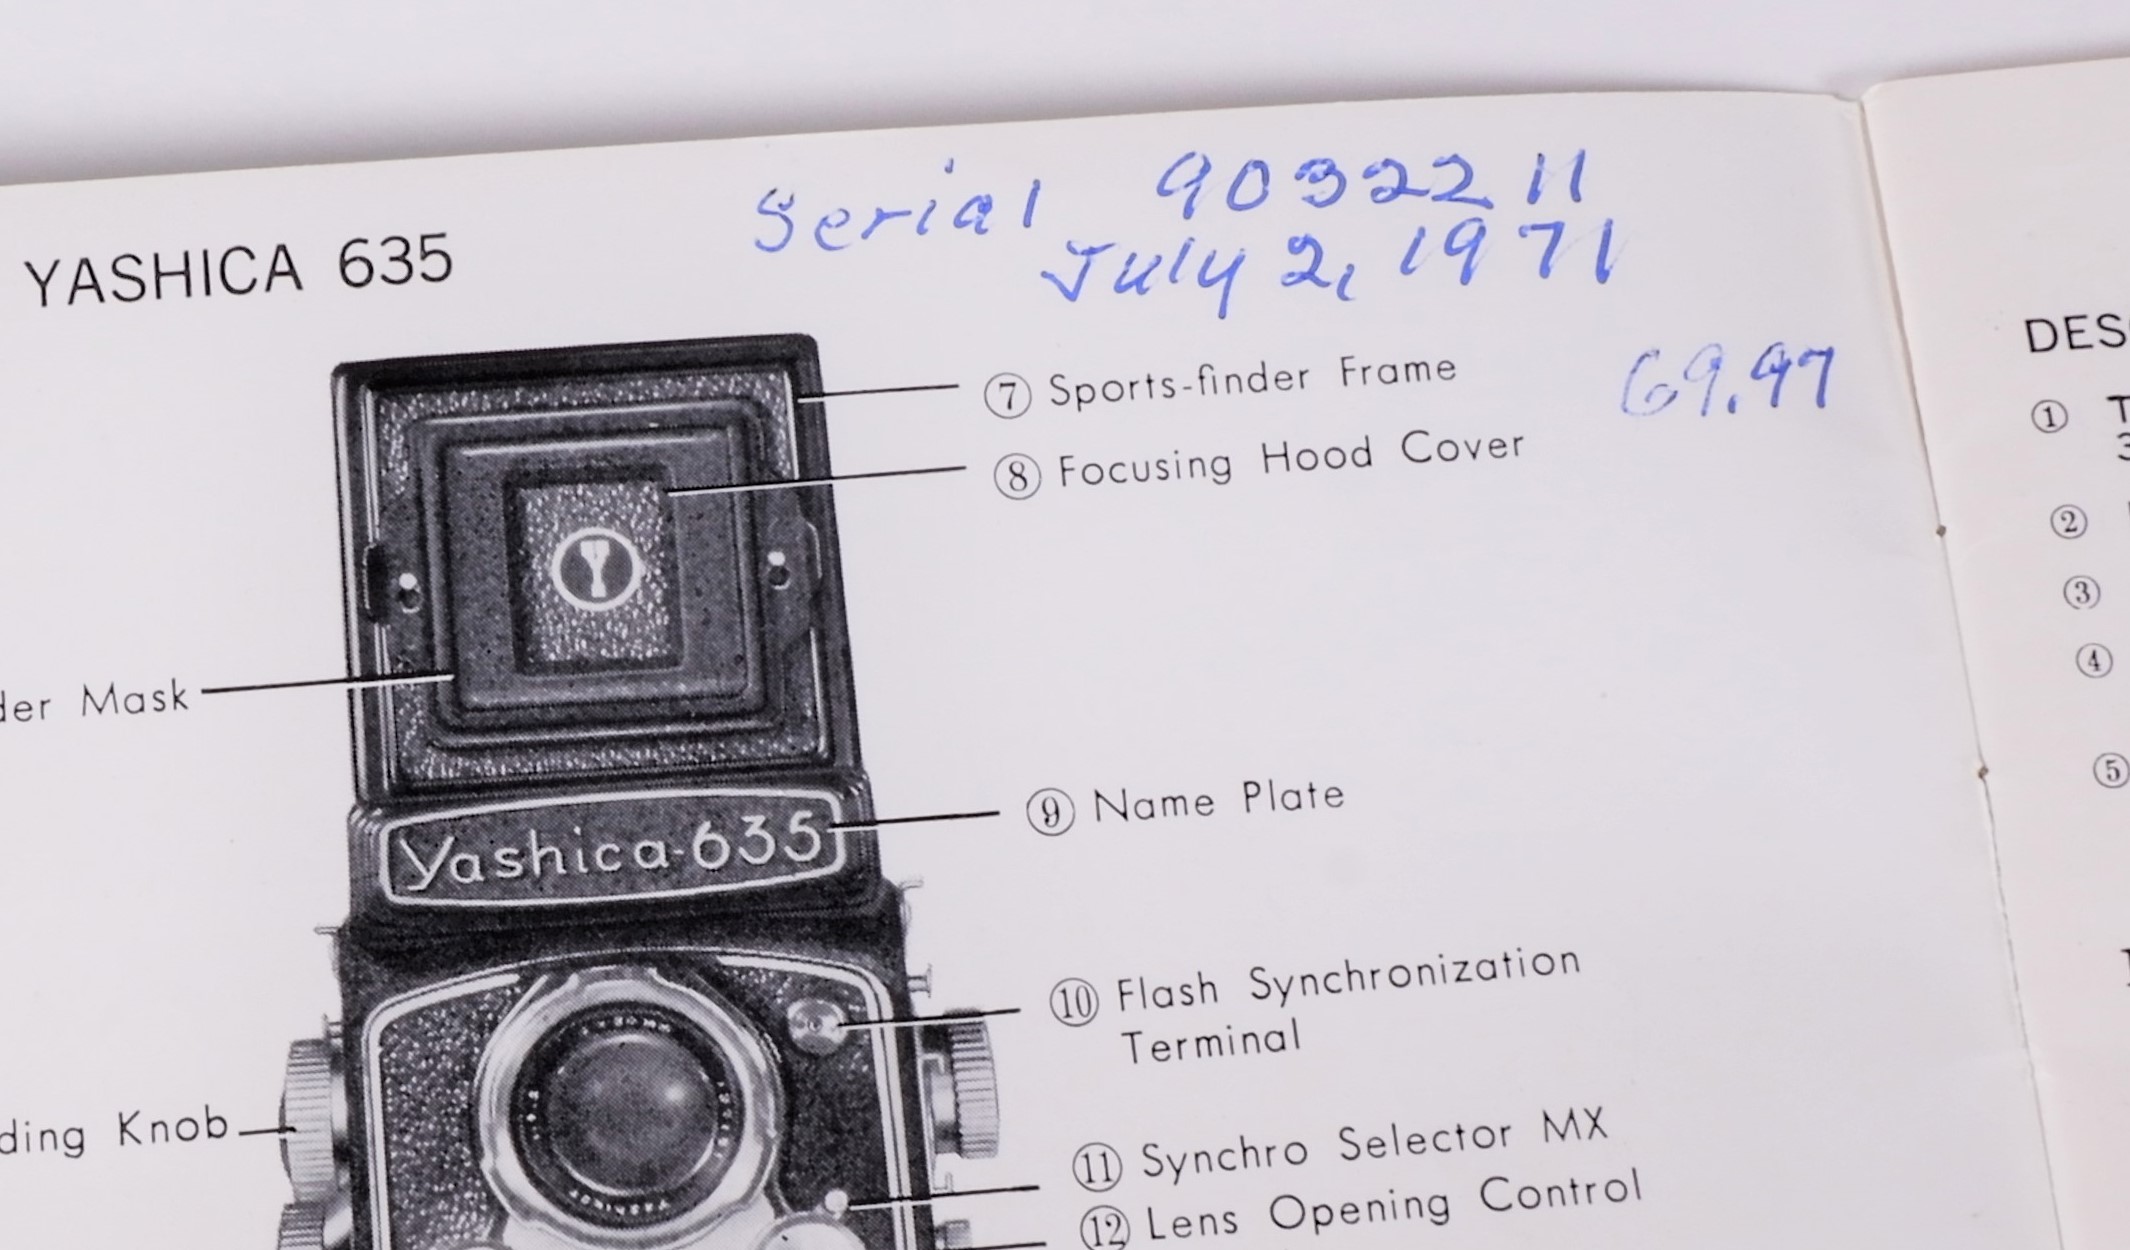 Serial 9032211
July 2, 1971
YASHICA 635
69.97
⑦ Sports-finder Frame
⑧ Focusing Hood Cover
der Mask
⑨ Name Plate
Yashica-635
⑩ Flash Synchronization
Terminal
ding Knob
⑪ Synchro Selector MX
⑫ Lens Opening Control
DES
①
②
③
④
⑤